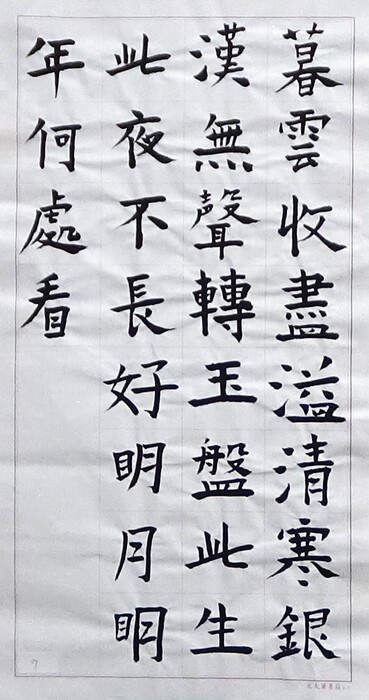 暮雲收盡溢清寒銀
漢無聲轉玉盤此生
此夜不長好明月明
年何處看